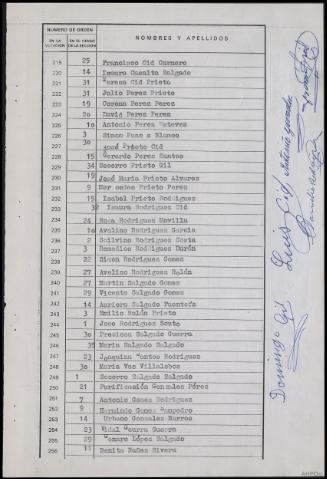 NUMERO DE ORDEN
NOMBRES Y APELLIDOS
EN LA VOTACION
EN EL CENSO DE LA SECCION
219 25 Francisco Cid Guerrero
220 14 Isaura Casalta Salgado
221 31 Teresa Cid Prieto
222 31 Julio Perez Prieto
223 19 Corona Perez Perez
224 2o David Perez Perez
225 1o Antonio Perez Esteves
226 3 Simon Puas a Blanco
227 3o José Prieto Cid
228 15 Gerardo Perez Santos
229 34 Socorro Prieto Gil
230 19 José Maria Prieto Alvares
231 9 Mercedes Prieto Perez
232 15 Isabel Prieto Rodriguez
233 32 Isaura Rodriguez Cid
234 24 Rosa Rodriguez Novilla
235 1o Avelino Rodriguez Garcia
236 2 Edilvino Rodriguez Costa
237 3 Remedios Rodriguez Durán
238 22 Simon Rodriguez Gomez
239 27 Avelino Rodriguez Rolán
240 27 Martin Salgado Gomez
241 29 Vicente Salgado Gomez
242 14 Auriera Salgado Fuentefs
243 3 Emilio Rolán Prieto
244 1 Jose Rodriguez Souto
245 3o Preciosa Salgado Guerra
246 35 Maria Salgado Salgado
247 23 Joaquina Santos Rodriguez
248 3o Maria Vaz Villalobos
249 1 Socorro Salgado Salgado
250 21 Purificación Gonzales Pérez
251 7 Antonio Gomez Rodriguez
252 9 Hermindo Gomez Sampedro
253 14 Urbano Gonzales Barros
254 23 Vidal Guerra Guerra
255 29 Genaro López Salgado
256 11 Benito Nuñez Rivera
Luis Cid
Domingo Cid